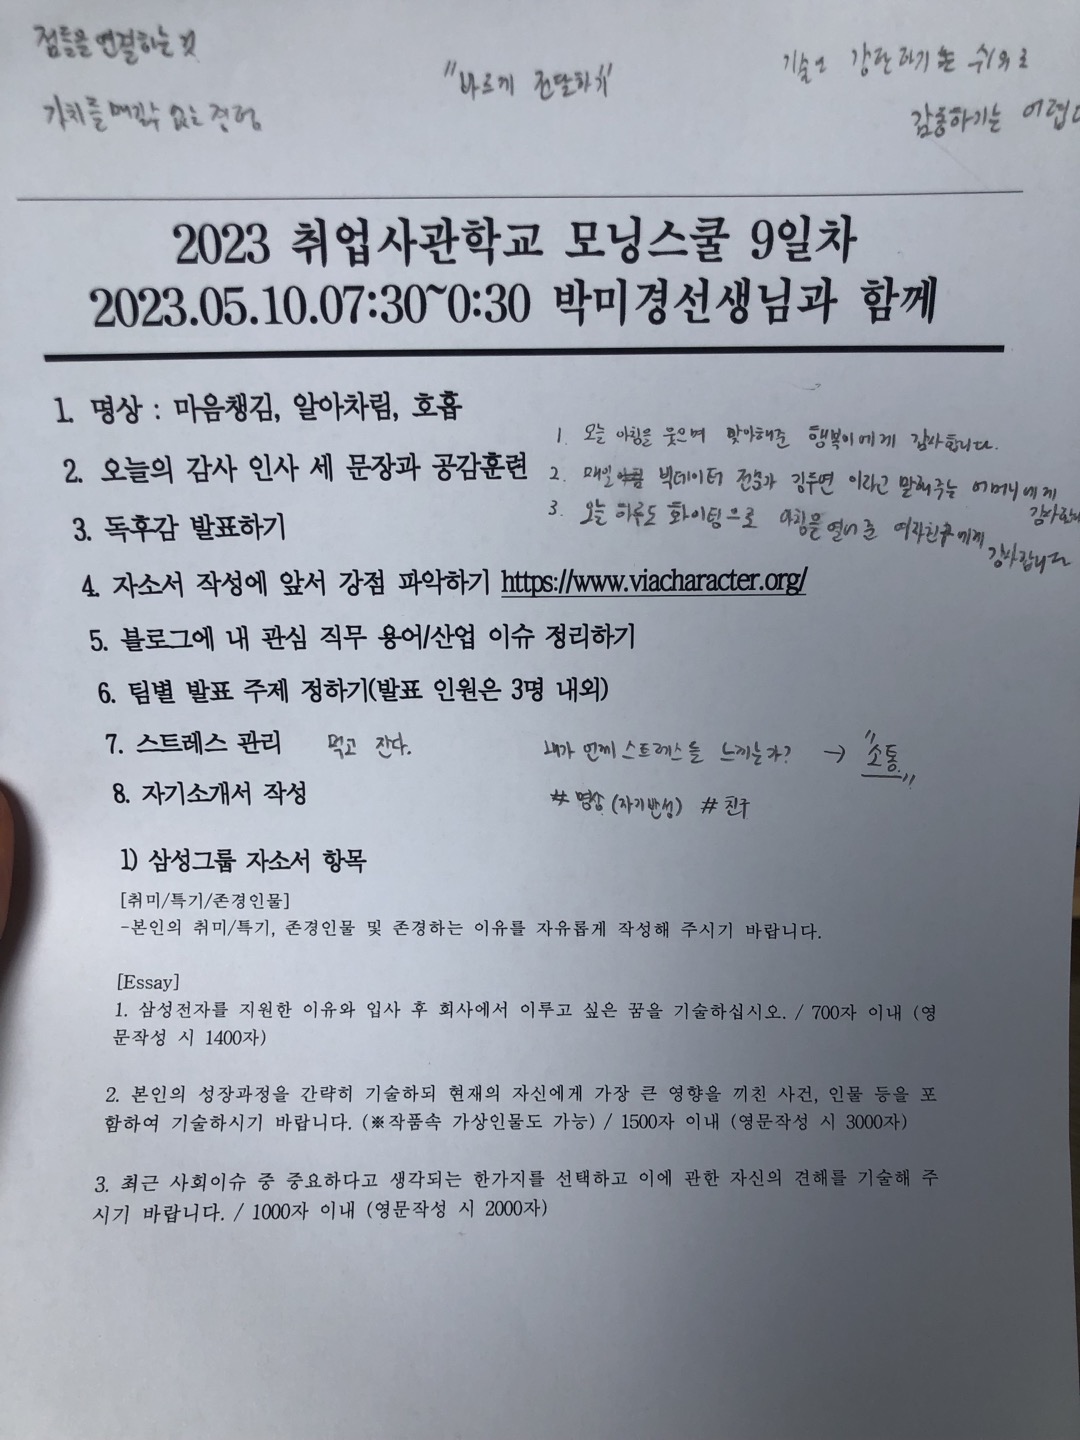 점들을 연결하는 것
가치를 매길 수 없는 경험
"바르게 전달하기"
감탄하기는 쉬워도
감동하기는 어렵다
2023 취업사관학교 모닝스쿨 9일차
2023.05.10.07:30~0:30 박미경선생님과 함께
1. 명상 : 마음챙김, 알아차림, 호흡
2. 오늘의 감사 인사 세 문장과 공감훈련
1. 오늘 아침을 웃으며 맞이해준 행복이에게 감사합니다.
2. 매일 빅데이터 전문가 김두연 이라고 말해주는 어머니에게
감사합니다
3. 오늘 하루도 화이팅으로 아침을 열어 준 여자친구에게
감사합니다
3. 독후감 발표하기
4. 자소서 작성에 앞서 강점 파악하기 https://www.viacharacter.org/
5. 블로그에 내 관심 직무 용어/산업 이슈 정리하기
6. 팀별 발표 주제 정하기(발표 인원은 3명 내외)
7. 스트레스 관리 먹고 잔다. 내가 언제 스트레스를 느끼는가? → "소통"
8. 자기소개서 작성 # 명상 (자기반성) # 친구
1) 삼성그룹 자소서 항목
[취미/특기/존경인물]
-본인의 취미/특기, 존경인물 및 존경하는 이유를 자유롭게 작성해 주시기 바랍니다.
[Essay]
1. 삼성전자를 지원한 이유와 입사 후 회사에서 이루고 싶은 꿈을 기술하십시오. / 700자 이내 (영
문작성 시 1400자)
2. 본인의 성장과정을 간략히 기술하되 현재의 자신에게 가장 큰 영향을 끼친 사건, 인물 등을 포
함하여 기술하시기 바랍니다. (※작품속 가상인물도 가능) / 1500자 이내 (영문작성 시 3000자)
3. 최근 사회이슈 중 중요하다고 생각되는 한가지를 선택하고 이에 관한 자신의 견해를 기술해 주
시기 바랍니다. / 1000자 이내 (영문작성 시 2000자)